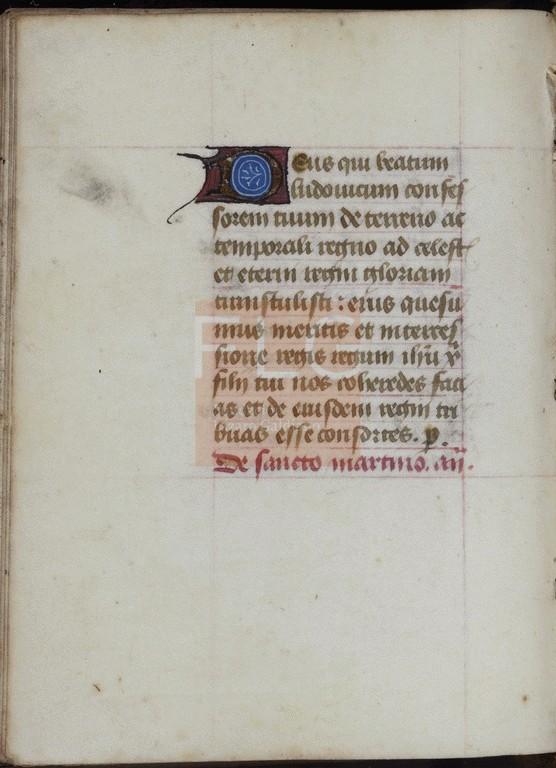 Deus qui beatum
ludouicum confes
sorem tuum de terreno ac
temporali regno ad celest
et eterni regni gloriam
transtulisti : eius quesu
mus meritis et interces
sione regis regum ihu x
filij tui nos coheredes faci
as et de eiusdem regni tri
buas esse consortes. p.
De sancto martino. an.
FLG